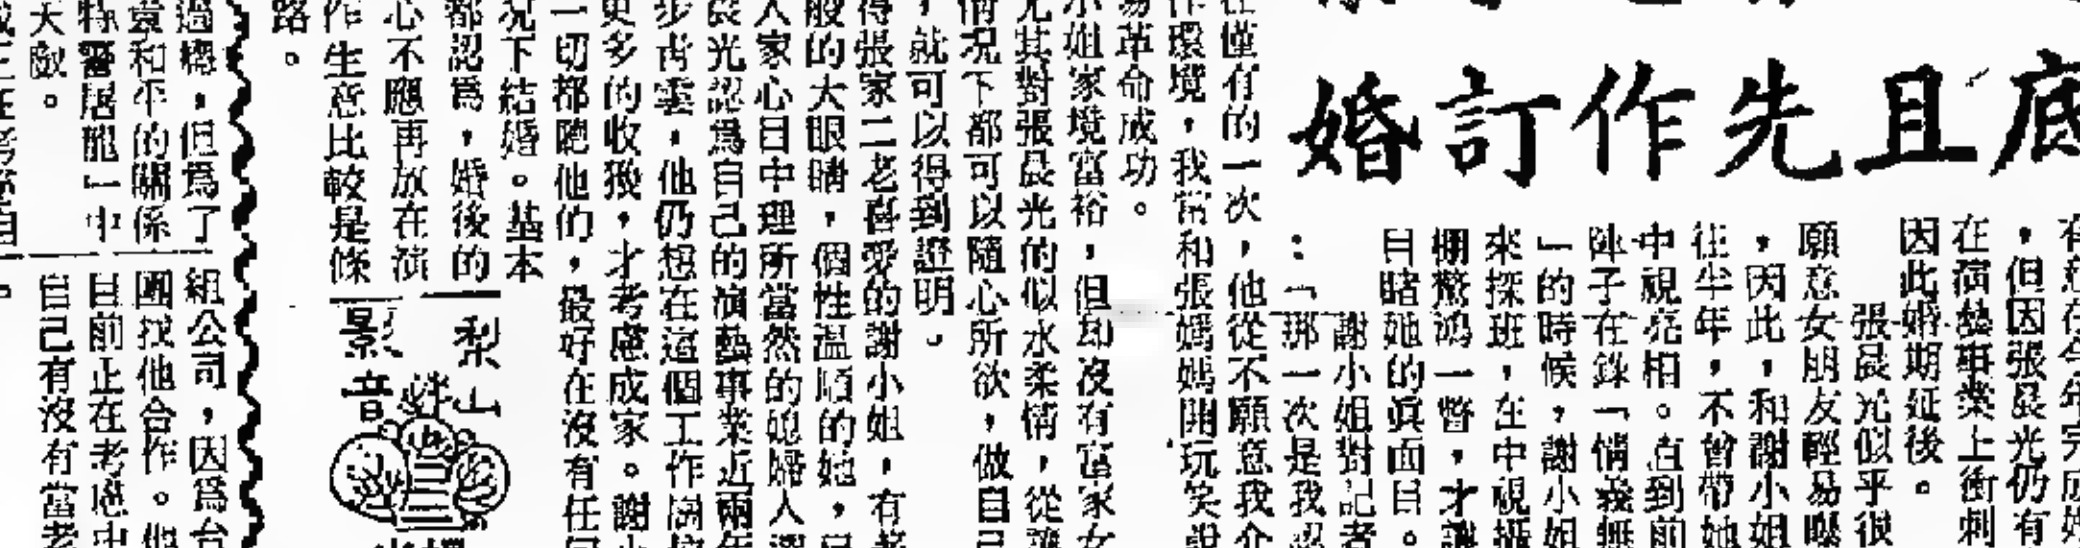 底且先作訂婚
，但因張晨光仍有
在演藝事業上衝刺
因此婚期延後。
張晨光似乎很
願意女朋友輕易曝
，因此，和謝小姐
往半年，不曾帶她
中視亮相。直到前
陣子在錄「情義無
」的時候，謝小姐
來探班，在中視攝
棚驚鴻一瞥，才讓
目睹她的真面目。
謝小姐對記者
：「那一次是我
在僅有的一次，他從不願意我介
作環境，我當和張媽媽開玩笑說
易革命成功。
小姐家境富裕，但却沒有富家女
尤其對張晨光的似水柔情，從
情況下都可以隨心所欲，做自己
，就可以得到證明。」
得張家二老喜愛的謝小姐，有著
般的大眼睛，個性溫順的她，
人家心目中理所當然的媳婦人選
晨光認爲自己的演藝事業近兩年
步青雲，他仍想在這個工作崗
更多的收獲，才考慮成家。謝
一切都聽他的，最好在沒有任何
況下結婚。基本
都認爲，婚後的
心不應再放在演
作生意比較是條
路。
梨山
影音
過癮，但爲了
景和平的關係
特警屠龍」中
大獻。
組公司，因爲台
團找他合作。他
目前正在考慮中
自己有沒有當老